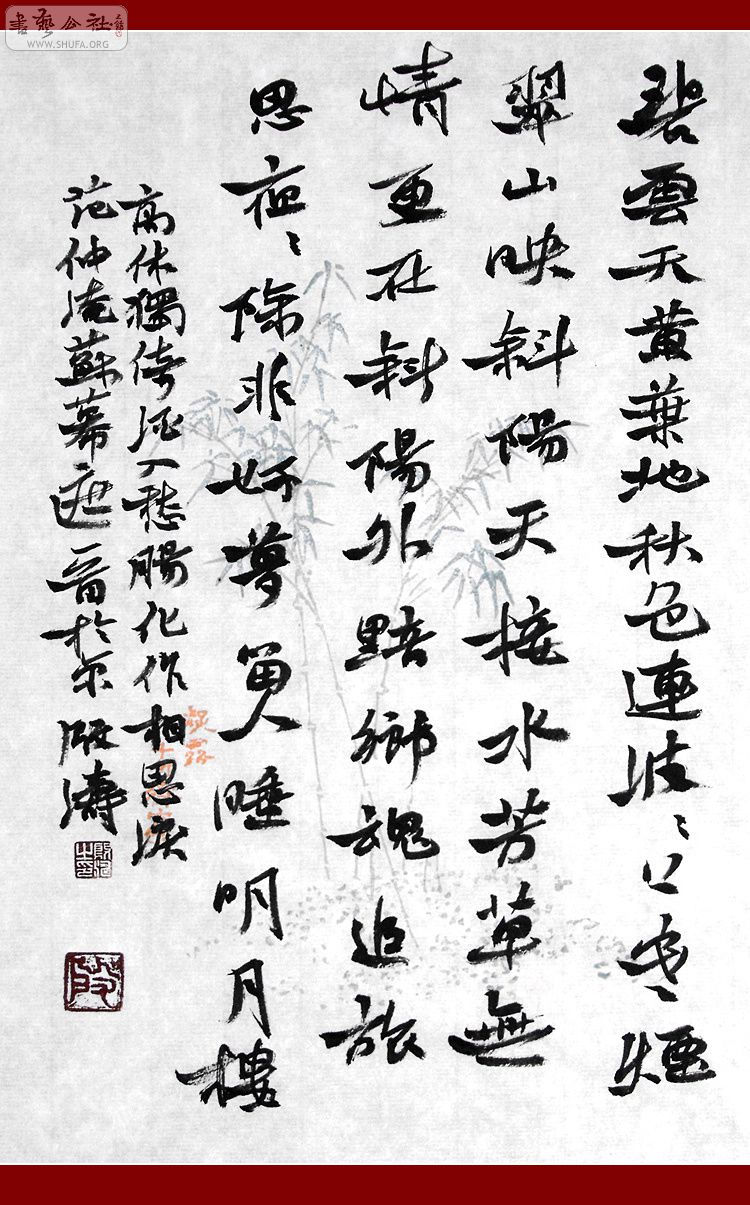 書藝公社
WWW.SHUFA.ORG
碧雲天黃葉地秋色連波〻上寒煙
翠山映斜陽天接水芳草無
情更在斜陽外黯鄉魂追旅
思夜〻除非好夢留人睡明月樓
高休獨倚酒入愁腸化作相思淚
范仲淹蘇幕遮一首於京殷濤
殷